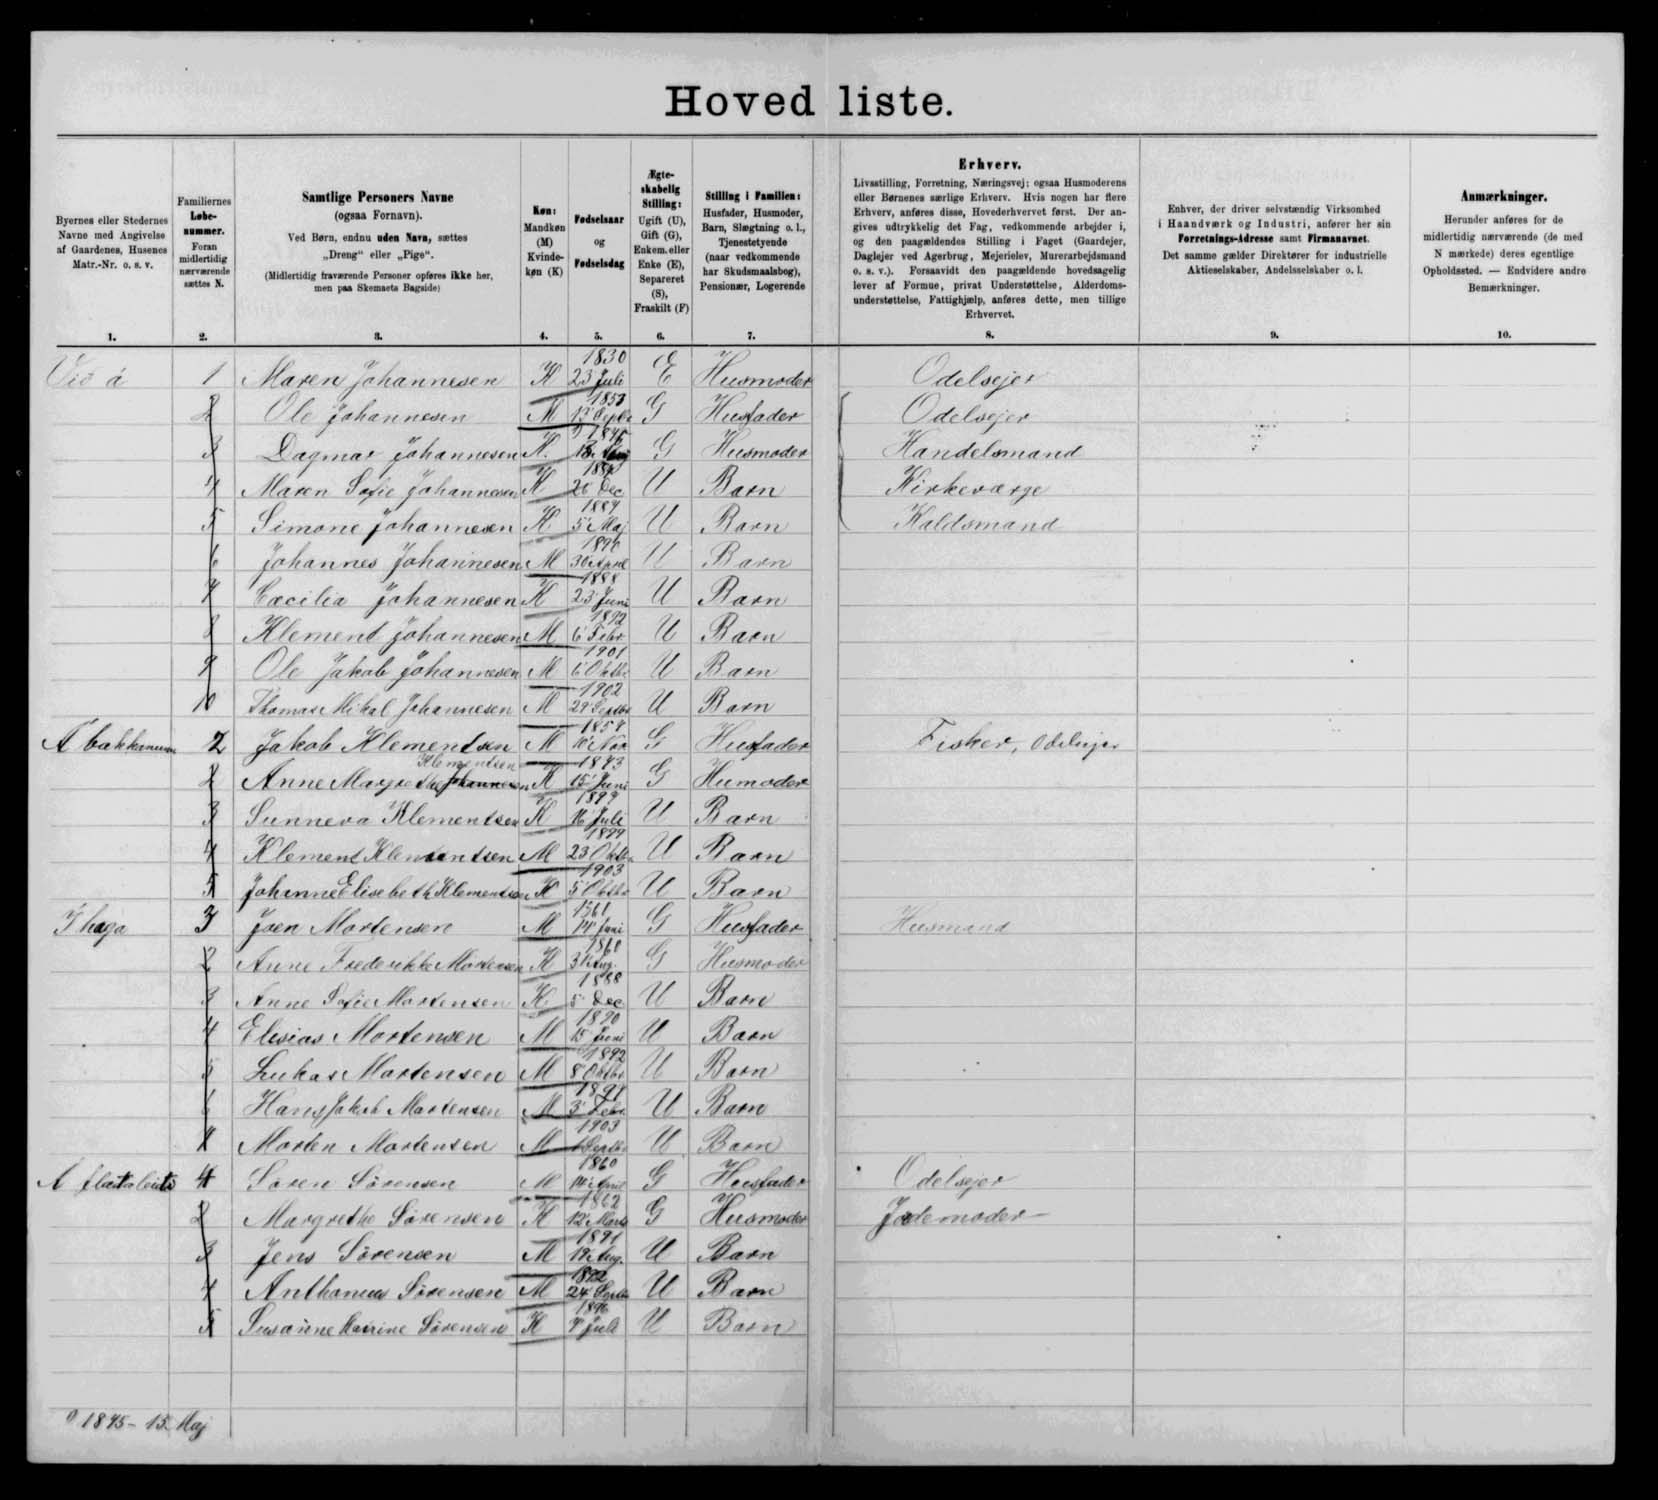 Hoved liste.
Byernes eller Stedernes Navne med Angivelse af Gaardenes, Husenes Matr.-Nr. o. s. v.
Familiernes Løbenummer. Foran midlertidig nærværende sættes N.
Samtlige Personers Navne (ogsaa Fornavn). Ved Børn, endnu uden Navn, sættes „Dreng“ eller „Pige“. (Midlertidig fraværende Personer opføres ikke her, men paa Skemaets Bagside)
Køn: Mandkøn (M) Kvindekøn (K)
Fødselsaar og Fødselsdag
Ægteskabelig Stilling: Ugift (U), Gift (G), Enkem. eller Enke (E), Separeret (S), Fraskilt (F)
Stilling i Familien: Husfader, Husmoder, Barn, Slægtning o. l., Tjenestetyende (naar vedkommende har Skudsmaalsbog), Pensionær, Logerende
Erhverv. Livsstilling, Forretning, Næringsvej; ogsaa Husmoderens eller Børnenes særlige Erhverv. Hvis nogen har flere Erhverv, anføres disse, Hovederhvervet først. Der angives udtrykkelig det Fag, vedkommende arbejder i, og den paagældendes Stilling i Faget (Gaardejer, Daglejer ved Agerbrug, Mejerielev, Murerarbejdsmand o. s. v.). Forsaavidt den paagældende hovedsagelig lever af Formue, privat Understøttelse, Alderdomsunderstøttelse, Fattighjælp, anføres dette, men tillige Erhvervet.
Enhver, der driver selvstændig Virksomhed i Haandværk og Industri, anfører her sin Forretnings-Adresse samt Firmanavnet. Det samme gælder Direktører for industrielle Aktieselskaber, Andelsselskaber o. l.
Anmærkninger. Herunder anføres for de midlertidig nærværende (de med N mærkede) deres egentlige Opholdssted. — Endvidere andre Bemærkninger.
1. 2. 3. 4. 5. 6. 7. 8. 9. 10.
Við á 1 Maren Johannesen K 1830 23 Juli E Husmoder Odelsejer
2 Ole Johannesen M 1853 G Husfader Odelsejer
3 Dagmar Johannesen K. G Husmoder Handelsmand
4 Maren Sofie Johannesen K Dec U Barn Kirkeværge
5 Simone Johannesen K 5 Maj U Barn
6 Johannes Johannesen M 30 April U Barn
7 Cæcilia Johannesen K 1888 23 Juni U Barn
8 Klement Johannesen M 1892 6 Febr U Barn
9 Ole Jakob Johannesen M 1901 6 Oktbr U Barn
10 Thomas Mikal Johannesen M 1902 29 Septbr U Barn
2 Jakob Klementsen M 10 Nov G Husfader Fisker, Odelsejer
2 Anne Margrethe Klementsen K 15 Juni G Husmoder
3 Sunneva Klementsen K 16 Juli U Barn
4 Klement Klementsen M 1899 23 Oktbr U Barn
5 Johanne Elisebeth Klementsen K 1903 5 Oktbr U Barn
I haga 3 Joen Mortensen M 1861 14 Juni G Husfader Husmand
2 Anne Frederikke Mortensen K Aug. G Husmoder
3 Anne Sofie Mortensen K 1888 5 Dec U Barn
4 Elesias Mortensen M 1890 15 Juni U Barn
5 Lukas Mortensen M 1892 8 Oktbr U Barn
6 Hans Jakob Mortensen M 3 Febr U Barn
Morten Mortensen M 1903 Septbr U Barn
4 Søren Sørensen M 1860 14 April G Husfader Odelsejer
2 Margrethe Sørensen K 1862 12 Marts G Husmoder Jodemoder
3 Jens Sørensen M 1891 19 Aug. U Barn
4 Anthonius Sørensen M 24 Septbr U Barn
5 Susanne Katrine Sørensen K 1896 Juli U Barn
1845 - 15. Maj